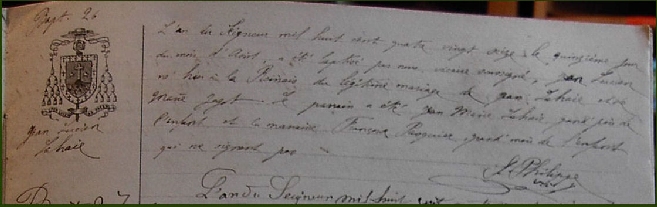 Bapt. 26
Jean Lucien
Lehaie
L'an du Seigneur mil huit cent quatre vingt seize le quinzième jour
du mois d'Août, a été baptisé par nous curé soussigné, Jean Lucien
né hier à la du légitime mariage de Jean Lehaie et de
le parrain a été Jean Marie Lehaie, grand père de
l'enfant et la marraine Françoise grand'mère de l'enfant
qui ne signent pas
J. Philippe
L'an du Seigneur mil huit cent